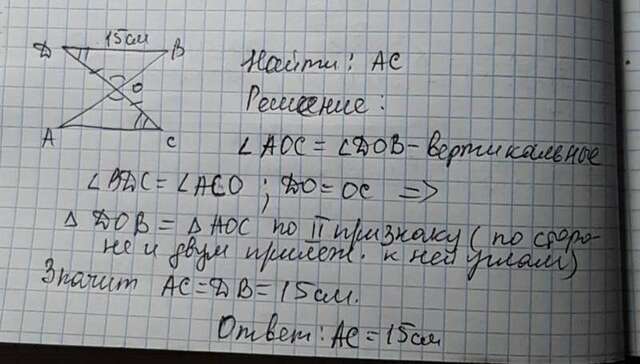 15см
D B
O
A C
Найти: AC
Решение:
∠AOC = ∠DOB - вертикальные
∠BDC = ∠ACO ; DO = OC =>
△ DOB = △ AOC по II признаку (по сторо-
не и двум прилеж. к ней углам)
Значит AC = DB = 15 см.
Ответ: AC = 15см